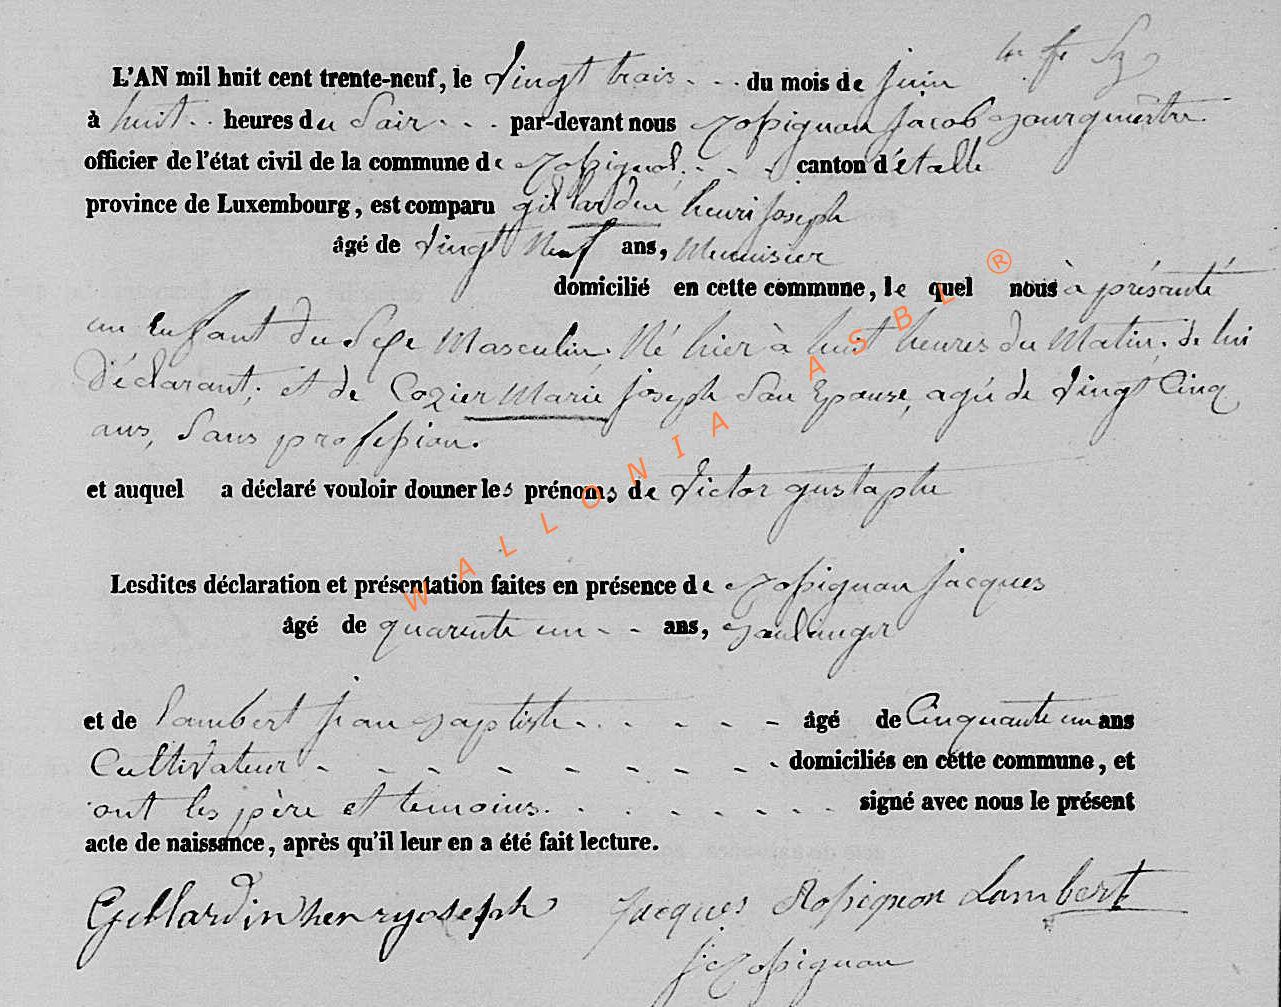 L'AN mil huit cent trente-neuf, le vingt trois - - . du mois de juin
à huit . . heures du Soir . . . par-devant nous Rossignon jacob Bourgmestre
officier de l'état civil de la commune de Rossignol . . . canton d'étalle
province de Luxembourg, est comparu gillardin henri joseph
âgé de vingt Neuf ans, Menuisier
domicilié en cette commune, le quel nous à présenté
un Enfant du Sexe Masculin, Né hier à huit heures du Matin, de lui
Déclarant, et de Cozier Marie joseph Son Epouse, agée de vingt Cinq
ans, Sans profession.
et auquel a déclaré vouloir donner les prénoms de Victor gustaphe
Lesdites déclaration et présentation faites en présence de Rossignon jacques
âgé de quarente un - - ans, Boulanger
et de Lambert jean Baptiste . . - - - - âgé de Cinquante un ans
Cultivateur - - - - - - - - - domiciliés en cette commune, et
ont les père et temoins . . . - - - - signé avec nous le présent
acte de naissance, après qu'il leur en a été fait lecture.
Gillardin henry joseph Jacques Rossignon Lambert
J Rossignon
WALLONIA ASBL ®